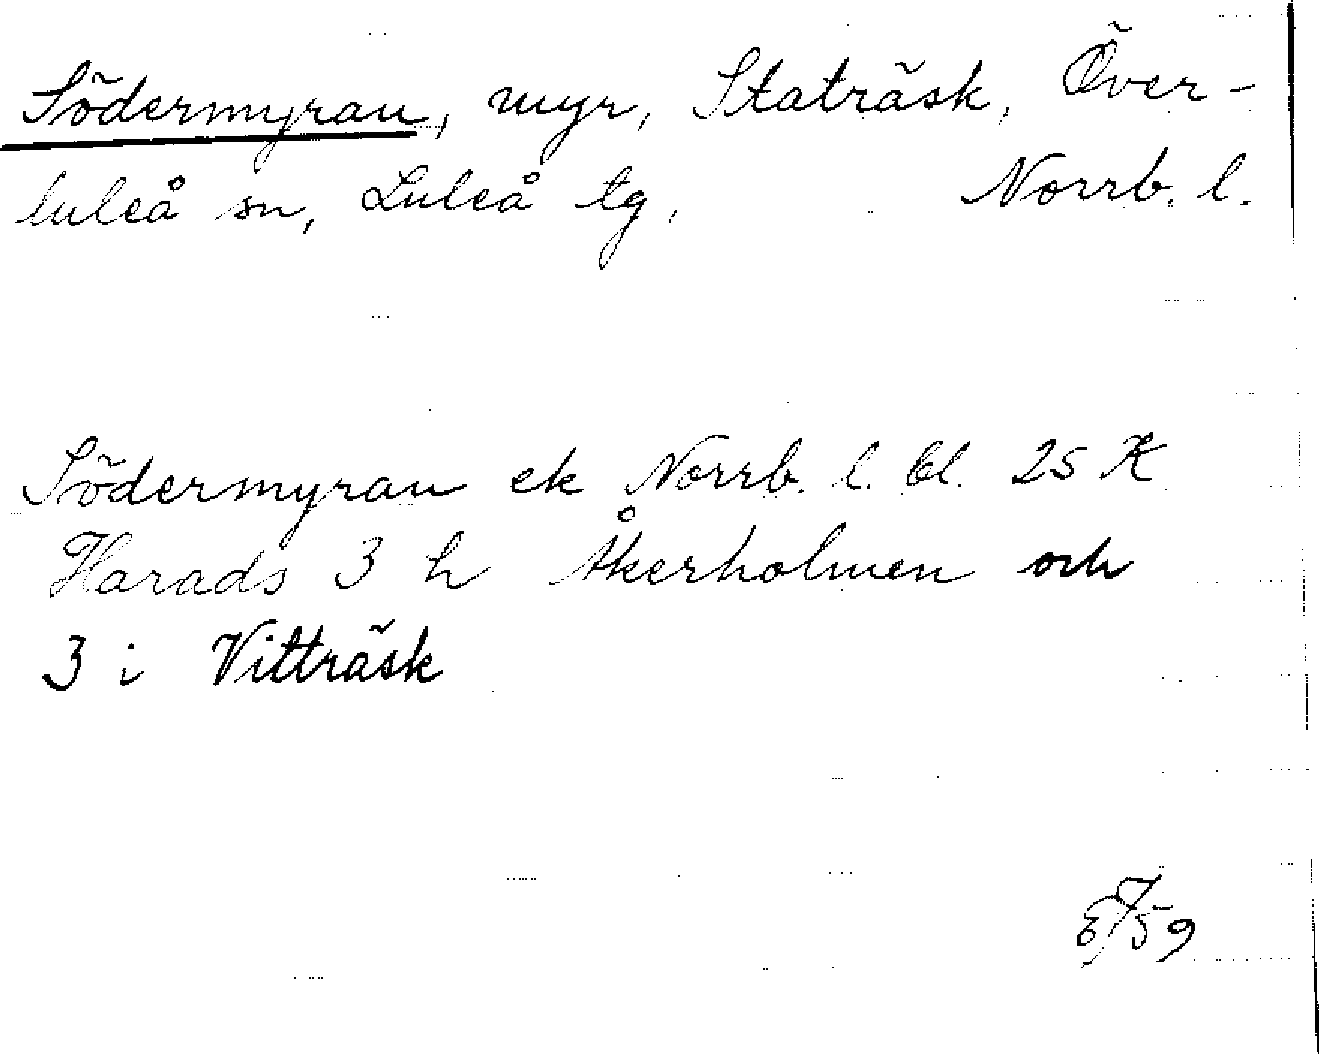 Södermyran, myr, Staträsk, Över-
luleå sn, Luleå tg, Norrb. l.
Södermyran ek Norrb. l. bl. 25 K
Harads 3 h Åkerholmen och
3 i Vitträsk